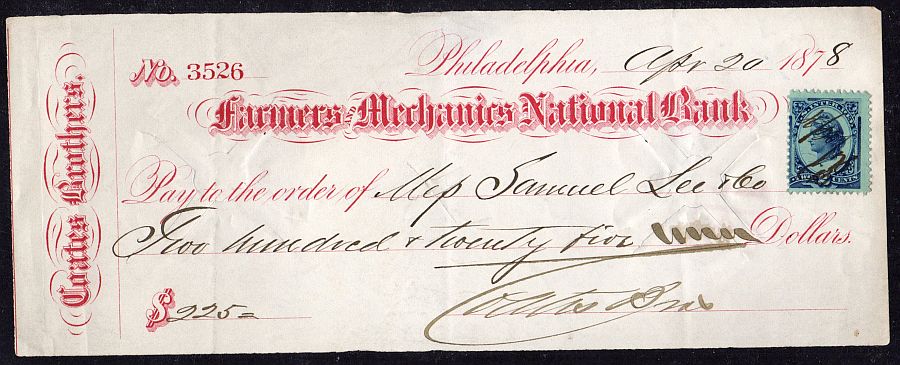 Coates Brothers.
No. 3526
Philadelphia, Apr 20 1878
Farmers and Mechanics National Bank
Pay to the order of Mess Samuel Lee & Co
Two hundred & twenty five Dollars.
$ 225=
Coates Bros
U.S. INTER. REV.
TWO CENTS